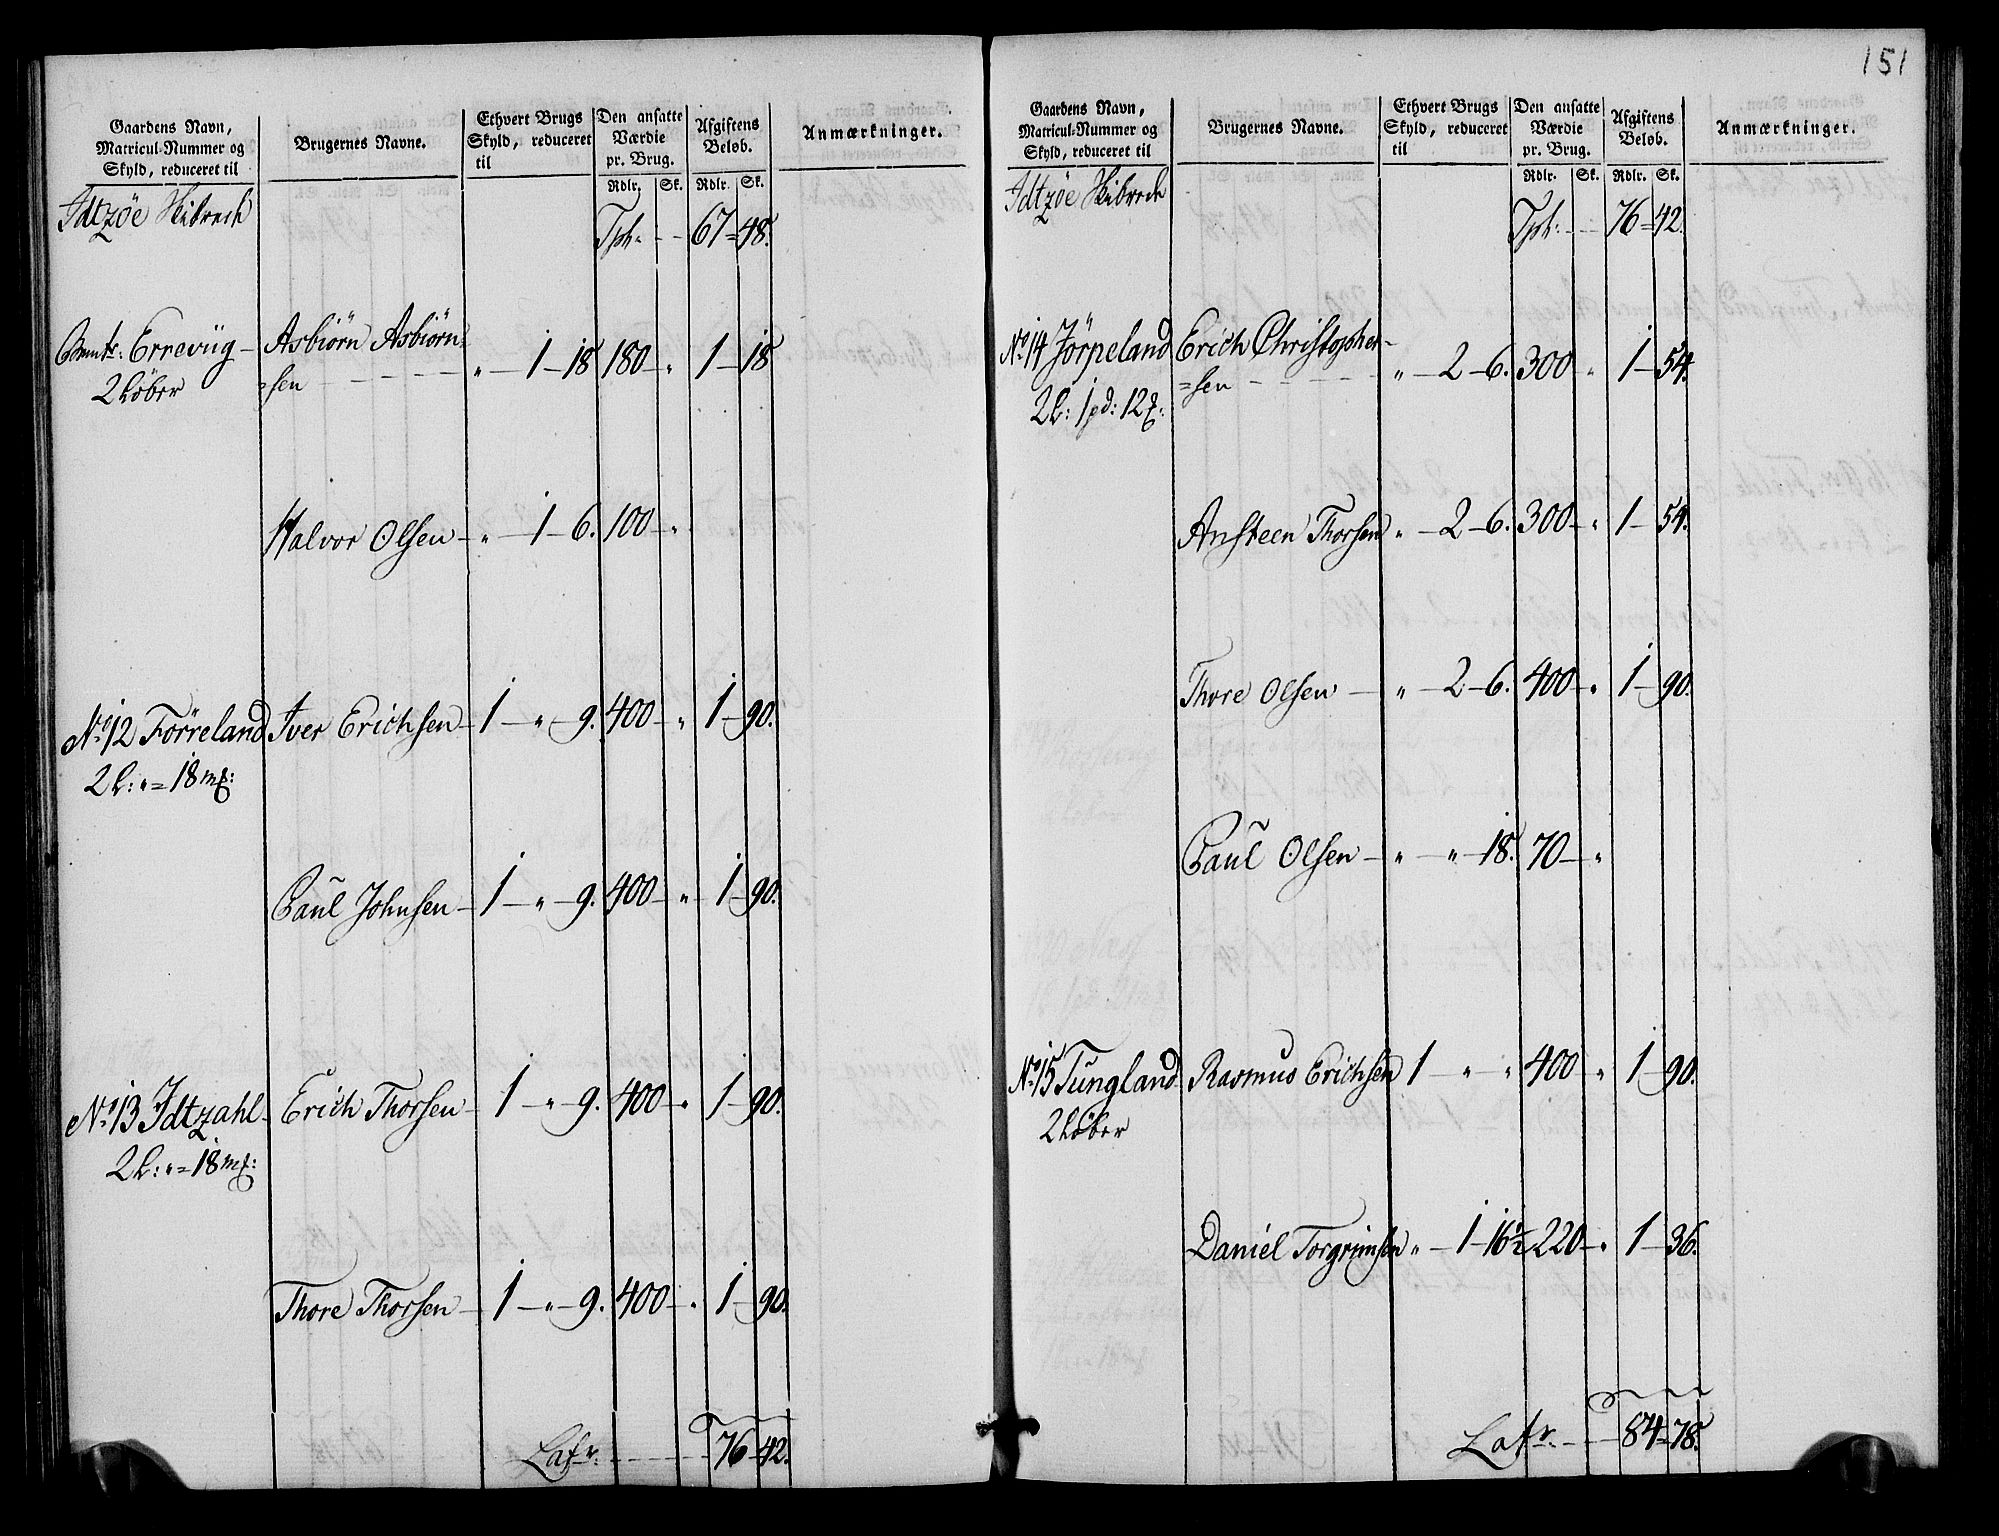 151
Gaardens Navn, Matricul-Nummer og Skyld, reduceret til
Brugernes Navne.
Ethvert Brugs Skyld, reduceret til
Den ansatte Værdie pr. Brug.
Afgiftens Beløb.
Anmærkninger.
Rdlr. Sk. Rdlr. Sk.
Idtzøe Skibrede
Tph: - - 67 = 48.
Ernevüg - Asbiörn Asbiörn= " - 1 - 18 180 - " 1 - 18
2 Løber =sen - - - -
Halvor Olsen - " - 1 - 6. 100 - "
No 12 Förreland Iver Erichsen - 1 - " - 9. 400 - " 1 - 90.
2 L: " = 18 mk:
Paul Johnsen - 1 - " - 9. 400 - " 1 - 90.
No 13 Idtzahl - Erich Thorsen - 1 - " - 9. 400 - " 1 - 90.
2 L: " = 18 mk:
Thore Thorsen - 1 - " - 9. 400 - " 1 - 90.
Latr. - - - - 76 - 42.
Gaardens Navn, Matricul-Nummer og Skyld, reduceret til
Brugernes Navne.
Ethvert Brugs Skyld, reduceret til
Den ansatte Værdie pr. Brug.
Afgiftens Beløb.
Anmærkninger.
Rdlr. Sk. Rdlr. Sk.
Idtzøe Skibrede
Tph: - - 76 = 42.
No 14 Jörpeland Erich Christopher- " - 2 - 6. 300 " 1 - 54.
2 L: 1 pd: 12 =sen - - - -
Ansteen Thorsen " - 2 - 6. 300 - " 1 - 54.
Thore Olsen - " - 2 - 6. 400 - " 1 - 90.
Paul Olsen - " " - 18. 70 - "
No 15 Tungland Rasmus Erichsen 1 - " " 400 " 1 - 90.
2 Løber
Daniel Torgrimsen " - 1 - 16½ - 220 - " 1 - 36.
Latr. - - - 84 = 78.